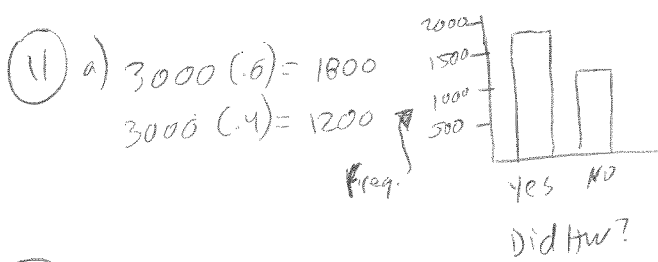 11 a) 3000 (.6) = 1800
3000 (.4) = 1200
Freq.
2000
1500
1000
500
Yes No
Did HW?